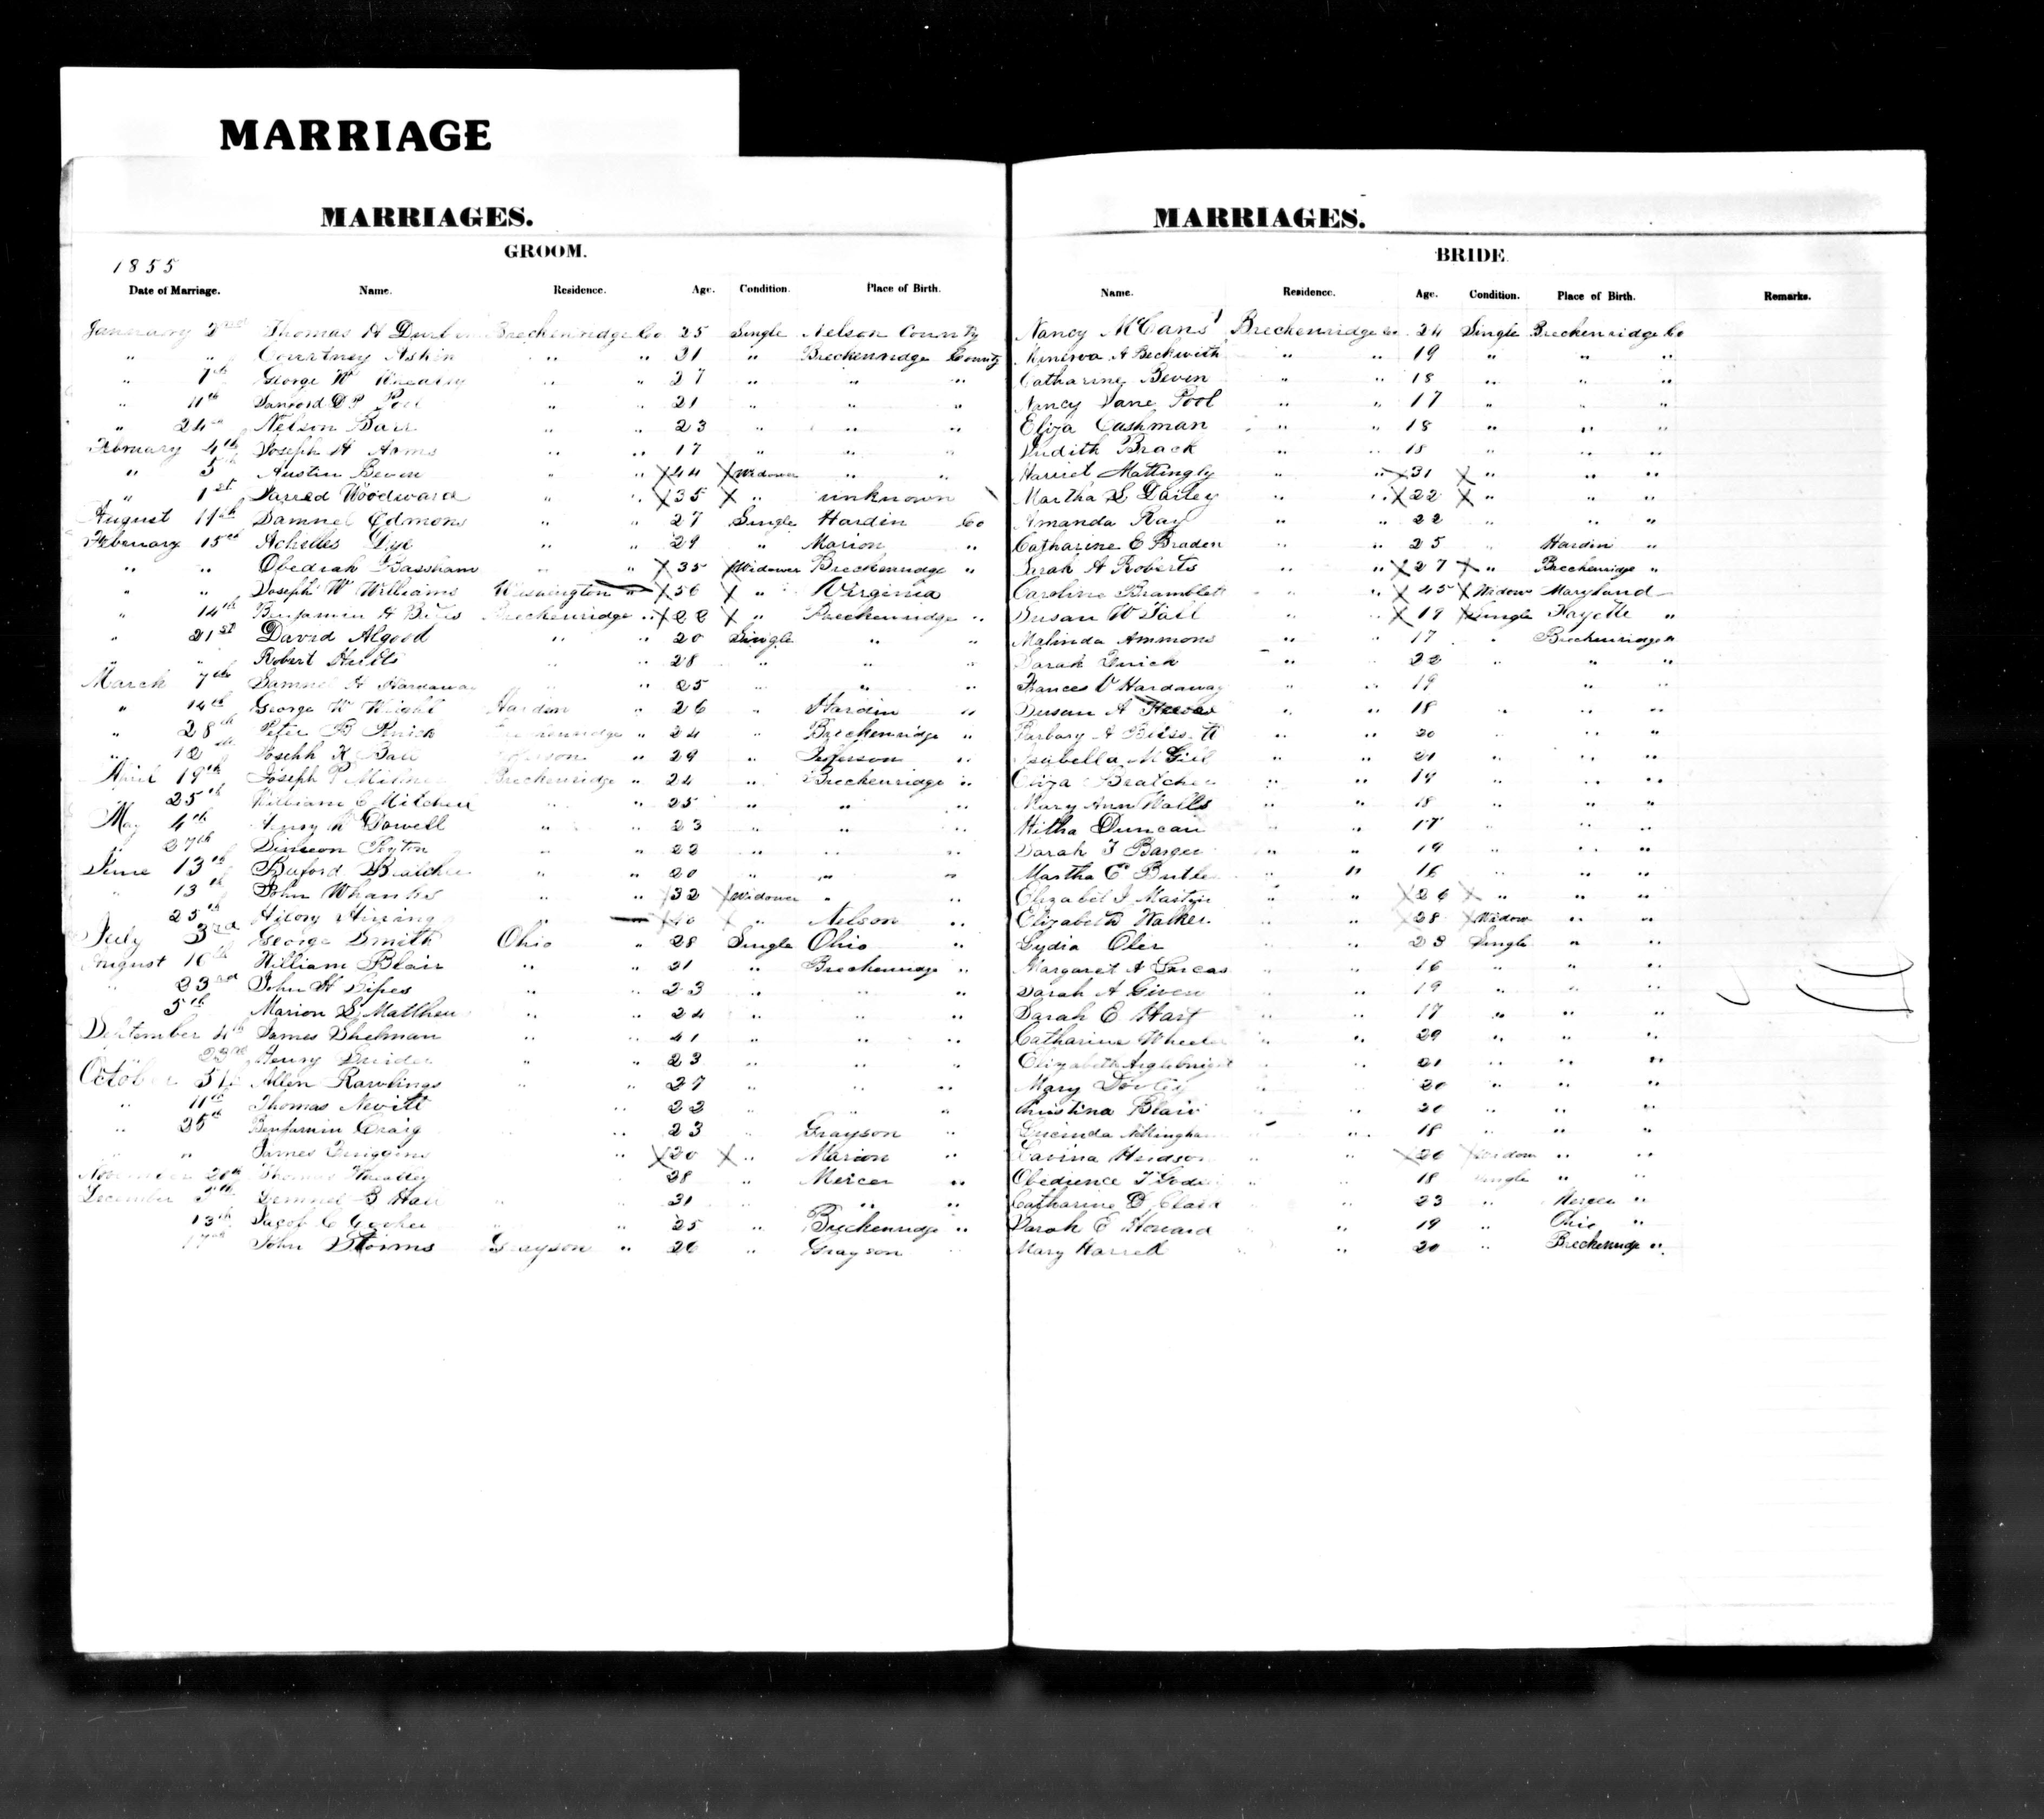 MARRIAGE
MARRIAGES.
GROOM.
1855
Date of Marriage. Name. Residence. Age. Condition. Place of Birth.
January 2nd Thomas H Durbin Breckenridge Co 25 Single Nelson County
" " Courtney Askin " " 21 " Breckenridge County
" 7th George W Wheatly " " 27 " " "
" 11th Sanford D P Pool " " 21 " " "
" 24th Nelson Barr " " 23 " " "
February 4th Joseph H Ams " " 17 " " "
" 5th Austin Beven " " X 44 X Widower " "
" 1st Jarred Woodward " " X 35 X " unknown
August 14th Samuel Edmons " " 27 Single Hardin Co
February 15th Achelles Dye " " 29 " Marion "
" " Obediah Basham " " X 35 X Widower Breckenridge "
" " Joseph W Williams Washington " X 56 X " Virginia
" 14th Benjamin H Breckenridge " X 22 X " Breckenridge "
" 21st David Algood " " 20 Single " "
" " Robert " " 28 " " "
March 7th Samuel H Hardaway " " 25 " " "
" 14th George W Wright Hardin " 26 " Hardin "
" 28th Peter B Breckenridge " 24 " Breckenridge "
" 12th Joseph K Ball Jefferson " 29 " Jefferson "
April 19th Joseph P Breckenridge " 24 " Breckenridge "
" 25th William C Mitchell " " 25 " " "
May 4th Henry Dowell " " 23 " " "
" 27th Simeon " " 22 " " "
June 13th Buford Bratcher " " 20 " " "
" 13th John " " X 32 X Widower " "
25th Hilory " X 40 X " Nelson "
July 3rd George Smith Ohio " 28 Single Ohio "
August 10th William Blair " " 21 " Breckenridge "
" 23rd John H Sipes " " 23 " " "
5th Marion S Matthews " " 24 " " "
September 4th James Shelman " " 41 " " "
23rd Henry " " 23 " " "
October 5th Allen Rawlings " " 27 " " "
" 11th Thomas Nevitt " 22 " " "
" 25th Benjamin Craig " 23 Grayson "
" " James " X 20 X " Marion "
November 20th Thomas Wheatley " 28 " Mercer "
December 5th B Hall " " 31 " "
13th Jacob C " " 25 " Breckenridge "
17th John Storms Grayson " 26 " Grayson "
MARRIAGES.
BRIDE.
Name. Residence. Age. Condition. Place of Birth. Remarks.
Nancy McCans Breckenridge Co 24 Single Breckenridge Co
Minerva A Beckwith " " 19 " " "
Catharine Beven " " 18 " " "
Nancy Jane Pool " " 17 " " "
Eliza Cashman " " 18 " " "
Judith Brack " " 18 " " "
Harriet Mattingly " " X 31 X " " "
Martha S Dailey " " X 22 X " " "
Amanda Ray " " 22 " " "
Catharine E Braden " " 25 " Hardin "
Sarah A Roberts " " X 27 X " Breckenridge "
Caroline Bramblett " " X 45 X Widow Maryland
Susan W " " X 19 X Single Fayette "
Malinda Ammons " " 17 " Breckenridge "
Sarah " " 22 " " "
Frances V Hardaway " " 19 " "
Susan A " " 18 " " "
Barbary A " " 20 " "
Isabella McGill " " 21 " " "
Eliza Bratcher " " 19 " " "
Mary Ann Walls " " 18 " " "
Duncan " 17 " " "
Sarah J Barger " " 19 " " "
Martha E Butler " " 16 " " "
Elizabet J Martin " " X 26 X " " "
Elizabeth Walker " " X 28 X Widow " "
Lydia Oler " " 23 Single " "
Margaret A Lucas " " 16 " " "
Sarah A Given " " 19 " " "
Sarah E Hart " " 17 " " "
Catharine Wheeler " " 29 " " "
Elizabeth " 21 " " "
Mary " " 20 " " "
Christina Blair " " 20 " " "
Lucinda " " 18 " " "
Lavina Hudson " " X 20 X Widow " "
Obedience J " " 18 Single " "
Catharine D Clark " " 23 " Mercer "
Sarah E Howard " " 19 " Ohio "
Mary Harrell " " 20 " Breckenridge "